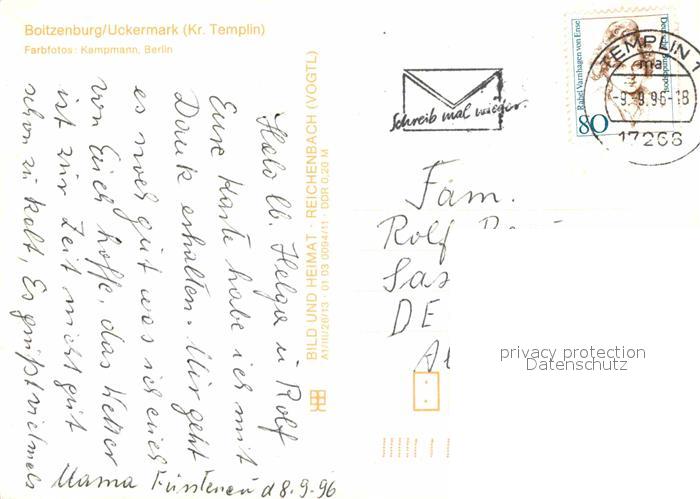 Boitzenburg/Uckermark (Kr. Templin)
Farbfotos: Kampmann, Berlin
Hallo lb. Helga u Rolf
Eure Karte habe ich mit
Dank erhalten. Mir geht
es noch gut was ich euch
von Euch hoffe, das Wetter
ist zur Zeit nicht gut
schon zu kalt, Es grüßt vielmals
Mama Fürstenau d 8.9.96
BILD UND HEIMAT · REICHENBACH (VOGTL)
A1/III/26/13 · 01 03 0094/11 · DDR 0,20 M
Schreib mal wieder.
Rahel Varnhagen von Ense
Deutsche Bundespost
80
TEMPLIN 1
ma
-9.-9.96-18
17268
Fam.
Rolf
Sas
DE
privacy protection
Datenschutz